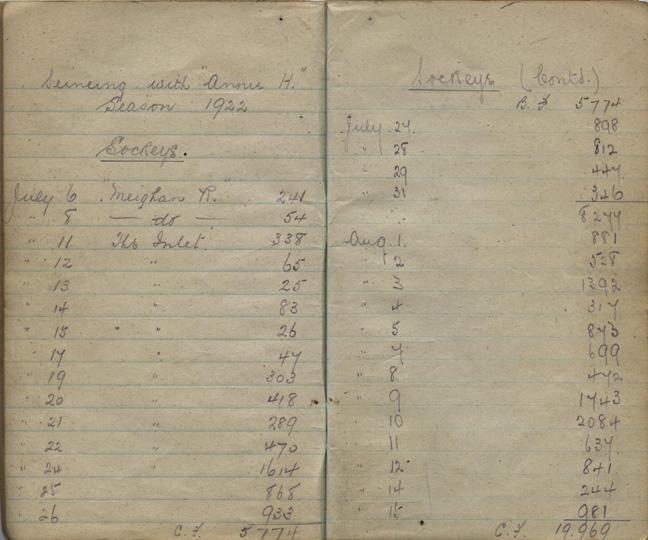 Seineing with "Annie H."
Season 1922
Sockeys.
July 6 "Meighan R." 241
" 8 — do — 54
" 11 Inlet 338
" 12 " 65
" 13 " 25
" 14 " 83
" 15 " " 26
" 17 " 47
" 19 " 303
" 20 " 418
" 21 " 289
" 22 " 470
" 24 " 1614
" 25 " 868
" 26 " 933
C.F. 5774
Sockeys (Contd.)
B.F 5774
July 27. 898
" 28 812
" 29 447
" 31 346
8277
Aug 1. 881
" 2 528
" 3 1392
" 4 317
" 5 873
" 7 699
" 8 472
" 9 1743
" 10 2084
" 11 637
" 12 841
" 14 244
" 15 981
C.F. 19.969